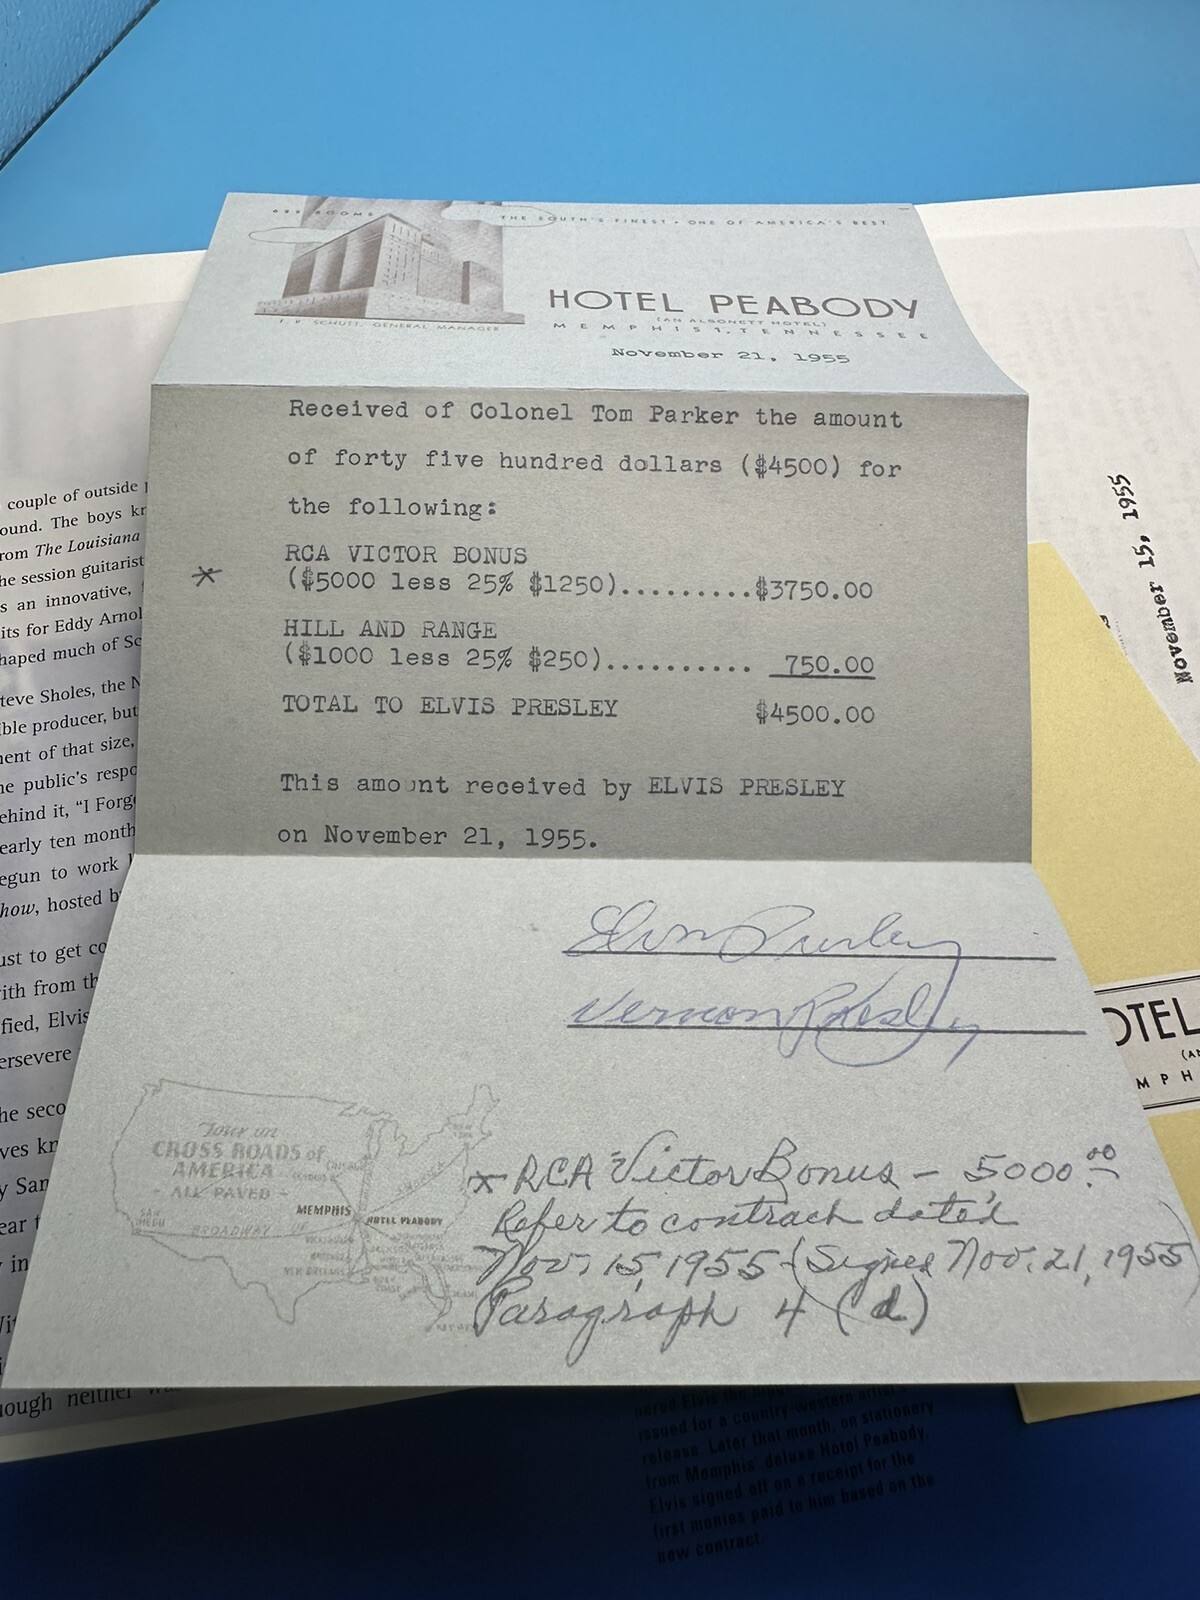 699 ROOMS
THE SOUTH'S FINEST • ONE OF AMERICA'S BEST
HOTEL PEABODY
(AN ALSONETT HOTEL)
MEMPHIS 1, TENNESSEE
F. R. SCHUTT, GENERAL MANAGER
November 21, 1955
Received of Colonel Tom Parker the amount
of forty five hundred dollars ($4500) for
the following:
RCA VICTOR BONUS
* ($5000 less 25% $1250).........$3750.00
HILL AND RANGE
($1000 less 25% $250).......... 750.00
TOTAL TO ELVIS PRESLEY $4500.00
This amount received by ELVIS PRESLEY
on November 21, 1955.
Elvis Presley
Vernon Presley
* RCA Victor Bonus - 5000.00
Refer to contract dated
Nov. 15, 1955 - (Signed Nov. 21, 1955)
Paragraph 4 (d)
Tour on
CROSS ROADS of
AMERICA
- ALL PAVED -
MEMPHIS
HOTEL PEABODY
SAN
DIEGO
BROADWAY OF
couple of outside
ound. The boys
rom The Louisiana
he session guitarist
s an innovative,
its for Eddy Arnol
haped much of Sc
teve Sholes, the N
ible producer, but
ment of that size,
he public's respo
ehind it, "I Forg
early ten month
egun to work
how, hosted b
ust to get co
ith from th
fied, Elvis
ersevere
he seco
ves kn
y Sam
ear t
in
ough neither
November 15, 1955
OTEL
MPH
issued for a country-western artist's
release. Later that month, on stationery
from Memphis' deluxe Hotel Peabody,
Elvis signed off on a receipt for the
first monies paid to him based on the
new contract.